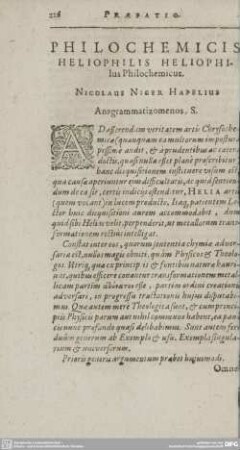 228 PRÆFATIO.
PHILOCHEMICIS
HELIOPHILIS HELIOPHI-
lus Philochemicus.
NICOLAUS NIGER HAPELIUS
Anagrammatizomenos. S.
AD asserendam veritatem artis Chrysoche-
micæ (quanquam ea multorum impostura
pessimè audit, & a prudentibus ac
doctis, quasi nulla est planè
hanc disquisitionem instituere visum est
qua causa aperiuntur
dum dicta sit, tertii indicis ostendetur, HELIA artis
(quem vocant) in lucem producto. Itaq, patientem Le-
ctor huic disquisitioni aurem accommodabit,
quod sibi Helia velit, perpenderit, ut metallorum trans-
formationem rectius intelligat.
Constat interea, quorum sententia chymiæ adver-
saria est, nullos magis obniti, quàm Physicos & Theolo-
gos. Utriq, qua ex principiis & fontibus natura hauri-
unt, quibus efficere conantur transformationem metal-
licam partim esse, partim ordini creationis
adversari, in progressu tractationis hujus disputabi-
mus. Quæ autem mere Theologica sunt, & cum princi-
piis Physicis parum aut nihil commune habent, ea pau-
cis nunc præfando quasi delibabimus. Sunt autem
duûm generum ab Exemplo & usu. Exempla singula-
rium & universorum.
Prioris generis argumentum præbet hujusmodi.
Omne